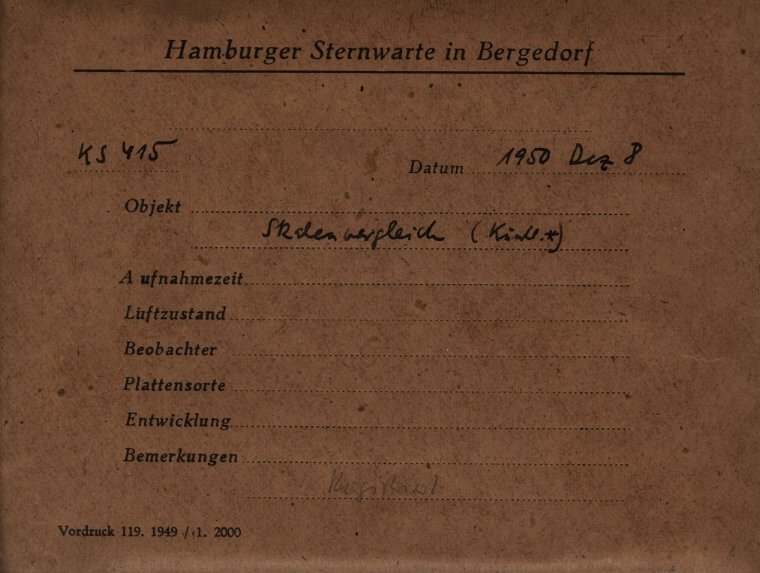 Hamburger Sternwarte in Bergedorf
KS 415
Datum 1950 Dez 8
Objekt
Skalenvergleich (Künstl.*)
Aufnahmezeit
Luftzustand
Beobachter
Plattensorte
Entwicklung
Bemerkungen
Registriert
Vordruck 119. 1949 / 1. 2000